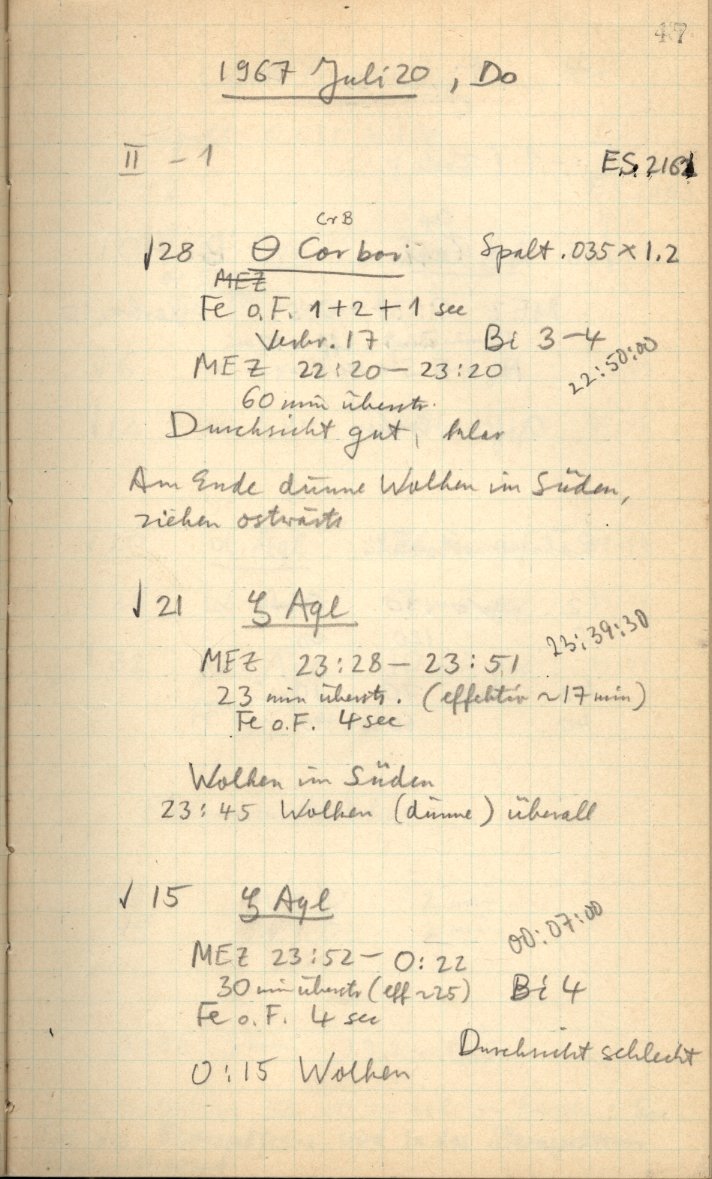 47
1967 Juli 20, Do
II – 1 ES. 2161
CrB
√28 Θ Corbor Spalt .035 × 1.2
MEZ
Fe o.F. 1+2+1 sec
Verbr. 17 Bi 3–4
MEZ 22:20 – 23:20 22:50:00
60 min überstr.
Durchsicht gut, klar
Am Ende dünne Wolken im Süden,
ziehen ostwärts
√ 21 ζ Aql
MEZ 23:28 – 23:51 23:39:30
23 min überstr. (effektiv ~17 min)
Fe o.F. 4 sec
Wolken im Süden
23:45 Wolken (dünne) überall
√ 15 ζ Aql
MEZ 23:52 – 0:22 00:07:00
30 min überstr (eff ~25) Bi 4
Fe o.F. 4 sec
Durchsicht schlecht
0:15 Wolken